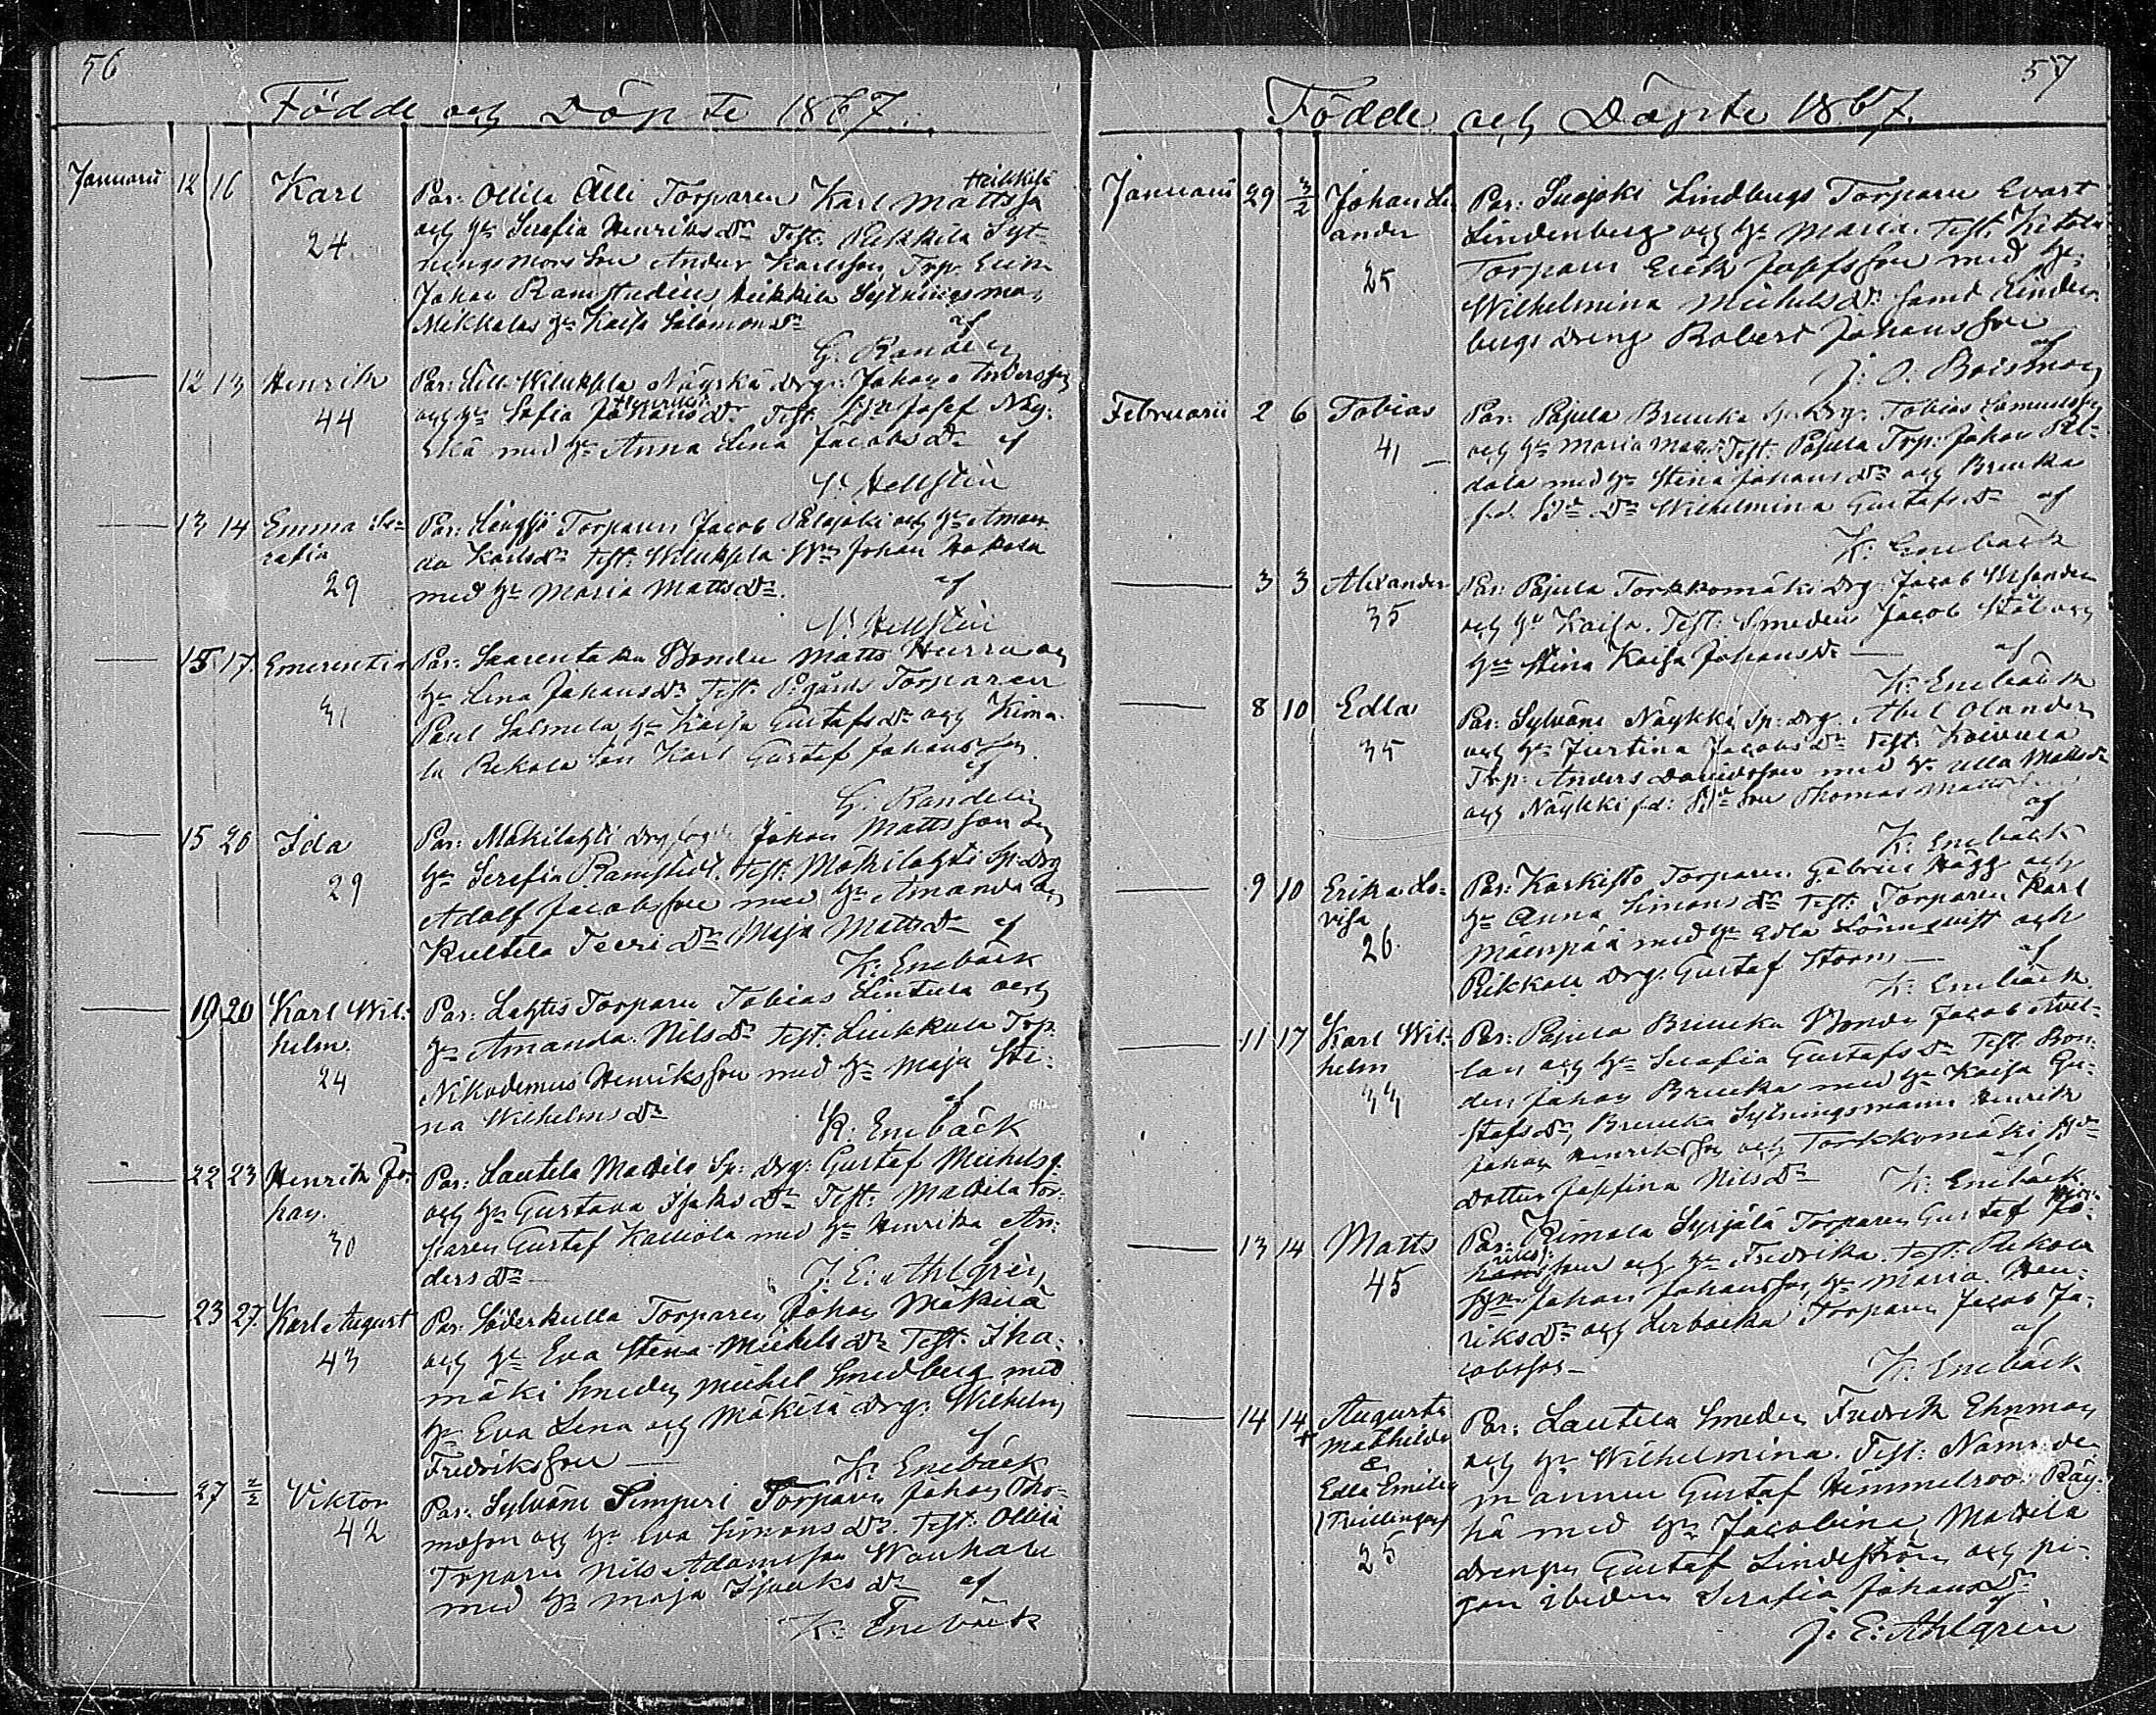 56
Födde och Döpte 1867.
Januarii 12 16 Karl
24
Par: Ollila Älli Torparen Karl Mattsso Heikkilä
och hu Serafia Henriks Dr Test: Pekkila Syt-
nings mans son Anders Karlsson, Trp. Erik
Johan Ramstadius, Heikkila Sytningsman
Mikkolas hu Kaisa Salomons Dr
af
G. Randelin
— 12 13 Henrik
44
Par: Lill Wiluksela Näyskä Drg: Johan Andersson
och hu Sofia Johans Dr Test: Josef Näy-
skä med hu Anna Lena Jacobs Dr af
Hellstén
— 13 14 Emma Se-
rafia
29
Par: Långsjö Torparen Jacob Palojoki och hu Aman-
da Karls Dr Test: Wiluksela Johan Hakala
med hu Maria Matts Dr. af
Hellstén
— 15 17. Emerentia
31
Par: Saarentaka Bonden Matts Hurra och
hu Lena Johans Dr Test: Torparen
Paul Salmela, hu Kaisa Gustafs Dr och Kima-
la Rekola son Karl Gustaf Johansson
af
G. Randelin
— 15 20 Ida
29
Par: Mäkilahti Johan Mattsson och
hu Serafia Ramstedt. Test: Mäkilahti Sp: Drg
Adolf Jacobsson med hu Amanda och
Kultela Teeri Dr Maja Matts Dr af
K: Enebäck
— 19 20 Karl Wil-
helm.
24
Par: Lahtis Torparen Tobias Lintula och
hu Amanda Nils Dr Test: Liukkala Trp.
Nikodemus Henriksson med hu Maja Sti-
na Wilhelms Dr af
K: Enebäck
— 22 23 Henrik Jo-
han.
30
Par: Lautela Madila Sp: Drg: Gustaf Michelss
och hu Gustava Isaks Dr Test: Madila Tor-
paren Gustaf Kalliola med hu Henrika An-
ders Dr — af
J. E: Ahlgrén
— 23 27. Karl August
43
Par: Söderkulla Torparen Johan Mäkilä
och hu Eva Stina Michels Dr Test: Iha-
mäki Smeden Michel Smedberg med
hu Eva Lena och Mäkilä Drg: Wilhelm
Fredriksson — af
K: Enebäck
— 27 2/2 Viktor
42
Par: Sylväne Simpuri Torparen Johan Tho-
masson och hu Eva Simons Dr. Test: Ollila
Torparen Nils Adamsson Wanhare
med hu Maja Isaaks Dr af
K: Enebäck
57
Födde och Döpte 1867.
Januarii 29 3/2 Johan Le-
ander
25
Par: Suojoki Lindbergs Torparen Evart
Lindenberg och hu Maria. Test: Ketola
Torparen Erik Josefsson med hu
Wilhelmina Michels Dr samt Linden-
bergs dreng Robert Johansson
af
J. O. Boisman
Februarii 2 6 Tobias
41 —
Par: Pajula Breucka Sp: Drg: Tobias Samuelsson
och hu Maria Test: Pajula Trp: Johan Pel-
dola med hu Stina Johans Dr och Breucka
f.d. Bde Dr Wilhelmina Gustafs Dr af
K: Enebäck
— 3 3 Alexander
35
Par: Pajula Torkkomäki Drg: Jacob
och hu Kaisa. Test: Smeden Jacob Stål och
hu Stina Kaisa Johans Dr — af
K: Enebäck
— 8 10 Edla
35
Par: Sylväne Näykki Sp: Drg: Abel Olander
och hu Justina Jacobs Dr Test: Koivula
Trp: Anders Davidsson med hu Ulla Matts Dr
och Näykki f.d: Bde son Thomas Mattsson
af
K: Enebäck
— 9 10 Erika Lo-
visa
26
Par: Karkisto Torparen Gabriel Hägg och
hu Anna Simons Dr Test: Torparen Karl
Mäenpää med hu Edla Lönnqvist och
Pikkala Drg: Gustaf Storm — af
K: Enebäck.
— 11 17 Karl Wil-
helm
33
Par: Pajula Breucka Bonden Jacob Avel-
lan och hu Serafia Gustafs Dr Test: Bon-
den Johan Breucka med hu Kaisa Gu-
stafs Dr, Breucka Sytningsmann Henrik
Johan Henriksson och Torkkomäki
dotter Josefina Nils Dr af
K: Enebäck
— 13 14 Matts
45
Par: Kimala Syrjälä Torparen Gustaf Jo-
hansson och hu Fredrika. Test: Rekola
Johan Johansson, hu Maria Hen-
riks Dr och Lerbacka Torparen Jacob Ja-
cobsson — af
K: Enebäck
— 14 14 + Augusta
Mathilda
&
Edla Emilia
(Tvillingar)
25
Par: Lautela Smeden Fredrik Ehnman
och hu Wilhelmina. Test: Nämnde-
mannen Gustaf Himmelroos Räy-
hä med hu Jacobina, Madila
drengen Gustaf Lindström och pi-
gan ibidem Serafia Johans Dr
af
J: E: Ahlgrén